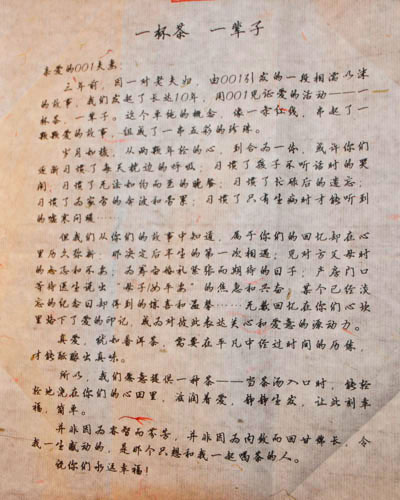 一杯茶 一辈子
亲爱的001夫妻：
三年前，因一对老夫妇，由001引发的一段相濡以沫
的故事，我们发起了长达10年，用001见证爱的活动——一
杯茶，一辈子。这个单纯的概念，像一条红线，串起了一
颗颗爱的故事，组成了一串五彩的珍珠。
岁月如梭，从两颗年轻的心，到合而为一体，或许你们
逐渐习惯了每天枕边的呼吸；习惯了孩子不听话时的哭
闹；习惯了无法如约而至的晚餐；习惯了忙碌后的遗忘；
习惯了为家害的奔波和劳累；习惯了只有生病时才能听到
的嘘寒问暖……
但我们从你们的故事中知道，属于你们的回忆却在心
里历久弥新：那决定后半生的第一次相遇；见对方父母时
的忐忑和不安；为筹备婚礼紧张而期待的日子；产房门口
等待医生说出“母子/女平安”的焦急和兴奋；某个已经淡
忘的纪念日却得到的惊喜和温馨……无数回忆在你们心坎
里烙下了爱的印记，成为对彼此表达关心和爱意的源动力。
真爱，犹如普洱茶，需要在平凡中经过时间的历练，
才能酝酿出真味。
所以，我们愿意提供一种茶——当茶汤入口时，能轻
轻地浇在你们的心田里，滋润着爱，静静生发，让此刻幸
福，简单。
并非因为寒暂而苦，并非因为内敛而回甘绵长，令
我一生感动的，是那个只想和我一起喝茶的人。
祝你们永远幸福！